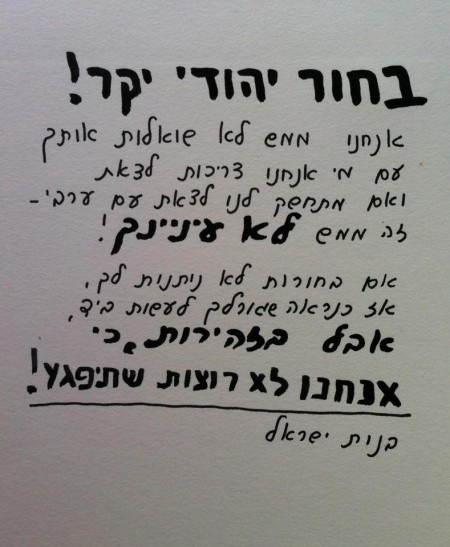 בחור יהודי יקר!
אנחנו ממש לא שואלות אותך
עם מי אנחנו צריכות לצאת
ואם מתחשק לנו לצאת עם ערבי -
זה ממש לא עיניינך!
אם בחורות לא נותנות לך,
אז כנראה שגורלך לעשות ביד,
אבל בזהירות, כי
אנחנו לא רוצות שתיפגע!
בנות ישראל